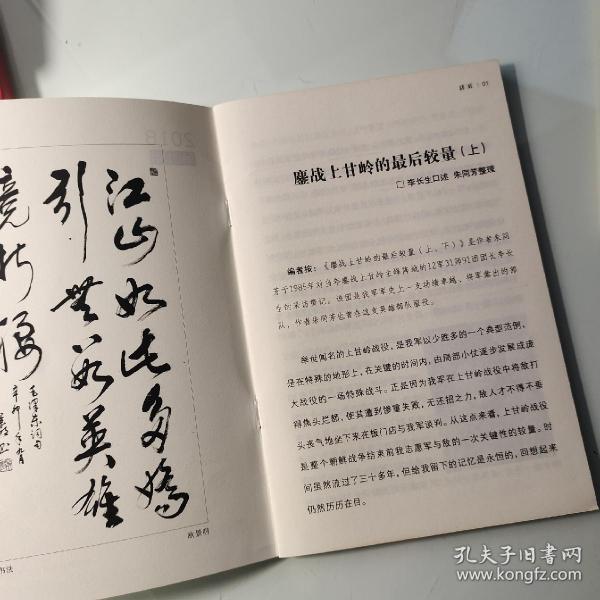 江山如此多娇
引无数英雄
竞折腰
毛泽东词句
书法
2018
鏖战上甘岭的最后较量(上)
□ 李长生口述 朱同芳整理
编者按:《鏖战上甘岭的最后较量(上、下)》是作者朱同
芳于1985年对当年鏖战上甘岭主峰阵地的12军31师91团团长李长
生的采访笔记。该团是我军军史上一支功绩卓越、将军辈出的部
队,作者朱同芳也曾在这支英雄部队服役。
举世闻名的上甘岭战役,是我军以少胜多的一个典型范例,
是在特殊的地形上,在关键的时间内,由局部小仗逐步发展成庞
大战役的一场特殊战斗。正是因为我军在上甘岭战役中将敌打
得焦头烂额,使其遭到惨重失败,无还招之力,敌人才不得不垂
头丧气地坐下来在板门店与我军谈判。从这点来看,上甘岭战役
是整个朝鲜战争结束前我志愿军与敌的一次关键性的较量。时
间虽然流过了三十多年,但给我留下的记忆是永恒的,回想起来
仍然历历在目。
孔夫子旧书网
www.kongfz.com